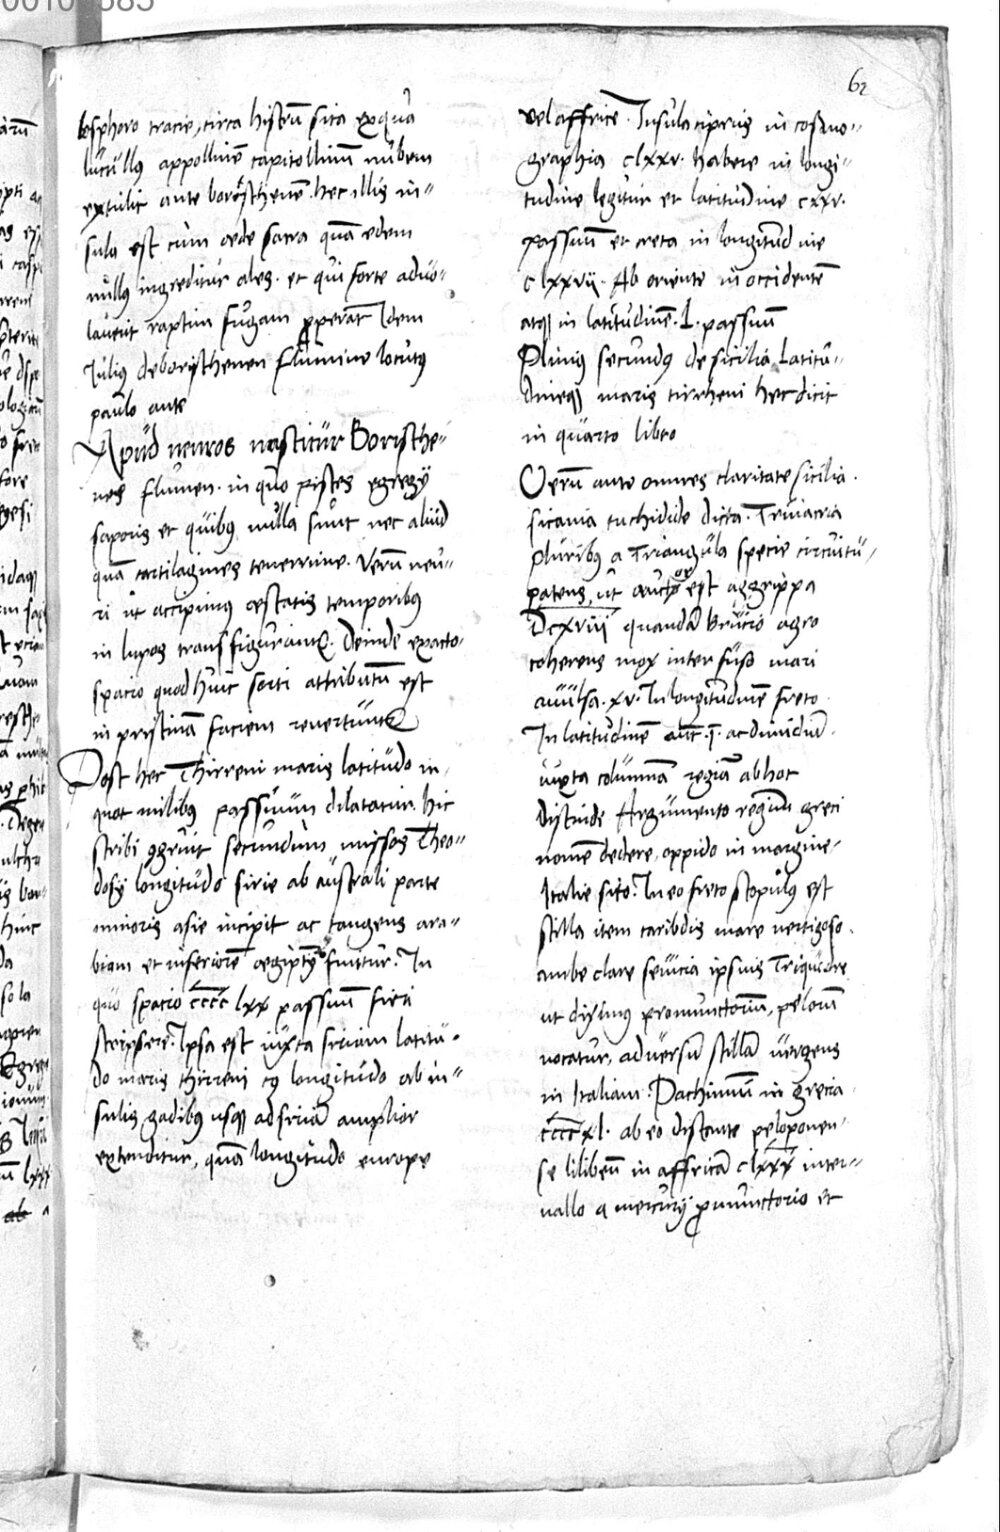 62
bosphoro tracie, circa histrū sita ex qua
lucullus appollinē capitollinū nubem
extulit ante boristhenē. hec illis in=
sula est cum aede sacra quā edem
nullus ingreditur ales. et qui forte aduo=
lauerit raptim fugam ꝓperāt Idem
Iulius de boristhenen flumine locutus
paulo ante
Apud neuros nascitur Boristhe=
nes flumen. in quo pisces egregij
saporis et quibus nulla sunt nec aliud
quā cartilagines tenerrime. Verū neu=
ri ut accipimus aestatis temporibus
in lupos transfigurant. Deinde exacto
spacio quod huic sorti attributū est
in pristinā faciem reuertunt
Post hec Thirreni maris latitudo in
quot milibus passuum dilatatur. hic
scribi ꝯgruit secundum missos Theo=
dosij longitudo sirie ab australi parte
minoris asie incipit ac tangens ara=
biam et inferiorē aegiptū finitur. In
quo spacio cccc lxx passuum fieri
scripsere. Ipsa est iuxta siriam latitu=
do maris thirreni cuius longitudo ab in=
sulis gadibus usque ad siriā amplior
extenditur, quā longitudo europe
uel affrice. Insula ciprus in cosmo=
graphia clxxv. habere in longi=
tudine legitur et latitudine cxxv.
passuum et creta in longitudine
clxxvij. Ab oriente in occidentē
atque in latitudinē. L. passuum
Plinius secundus de sicilia Latitu=
dineque maris tirrheni hec dicit
in quarto libro
Verū ante omnes claritate sicilia.
sicania tuchidide dicta. Trinacria
pluribus a Triangula specie circuitu
patens, ut auctor est aggrippa
Dcxviii quandā brucio agro
coherens mox interfuso mari
auulsa. xv. In longitudinē freto
In latitudinē aut. i. ac dimidiū.
iuxta columnā regiā ab hoc
Argumento regium greci
nomē dedere, oppido in margine
Italie sito. In eo freto scopulus est
scilla item caribdis mare uertigoso.
ambe clare seuicia ipsius Triquetre
ut diximus promunctorium, pelorū
uocatur, aduersū scillā uergens
in Italiam. Pachinum in grecia
cccc xl. ab eo distante peloponen=
se lilibeū in affricā clxxx inter=
uallo a mercurij ꝓmunctorio et